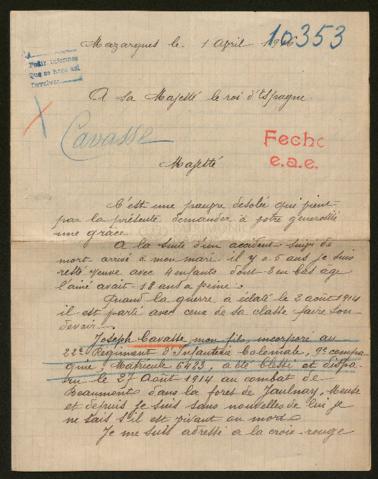 Mazargues le 1 April 1916
10353
Pedir informes
Que se haga asi
A Sa Majesté le roi d'Espagne
Cavasse
Fecho
e.a.e.
Majesté
C'est une pauvre désolée qui vient
par la présente demander à votre générosité
une grâce
A la suite d'un accident suivi de
mort arrivé à mon mari il y a 5 ans je suis
resté veuve avec 4 enfants dont 3 en bas age
l'ainé avait 18 ans a peine.
Quand la guerre a éclaté le 2 août 1914
il est partie avec ceux de sa classe faire son
devoir.
Joseph Cavasse mon fils, incorpore au
22e Régiment d'Infanterie Coloniale, 9e compa
gnie, Matricule 6423, a été blessé et dispa
ru le 27 Août 1914 au combat de
Beaumont dans la foret de Jaulnay, Meuse
et depuis je suis sans nouvelles de lui je
ne sais s'il est vivant ou mort
Je me suis adressé a la croix-rouge